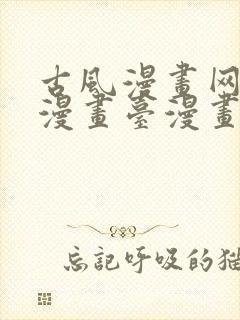 古风漫畫网
漫畫臺漫畫
忘记呼吸的猫